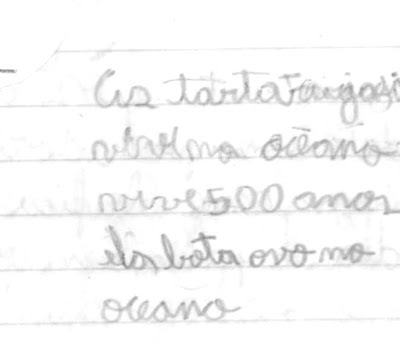 As tartarugas
vive no oceano
vive 500 anos
ela bota ovo no
oceano